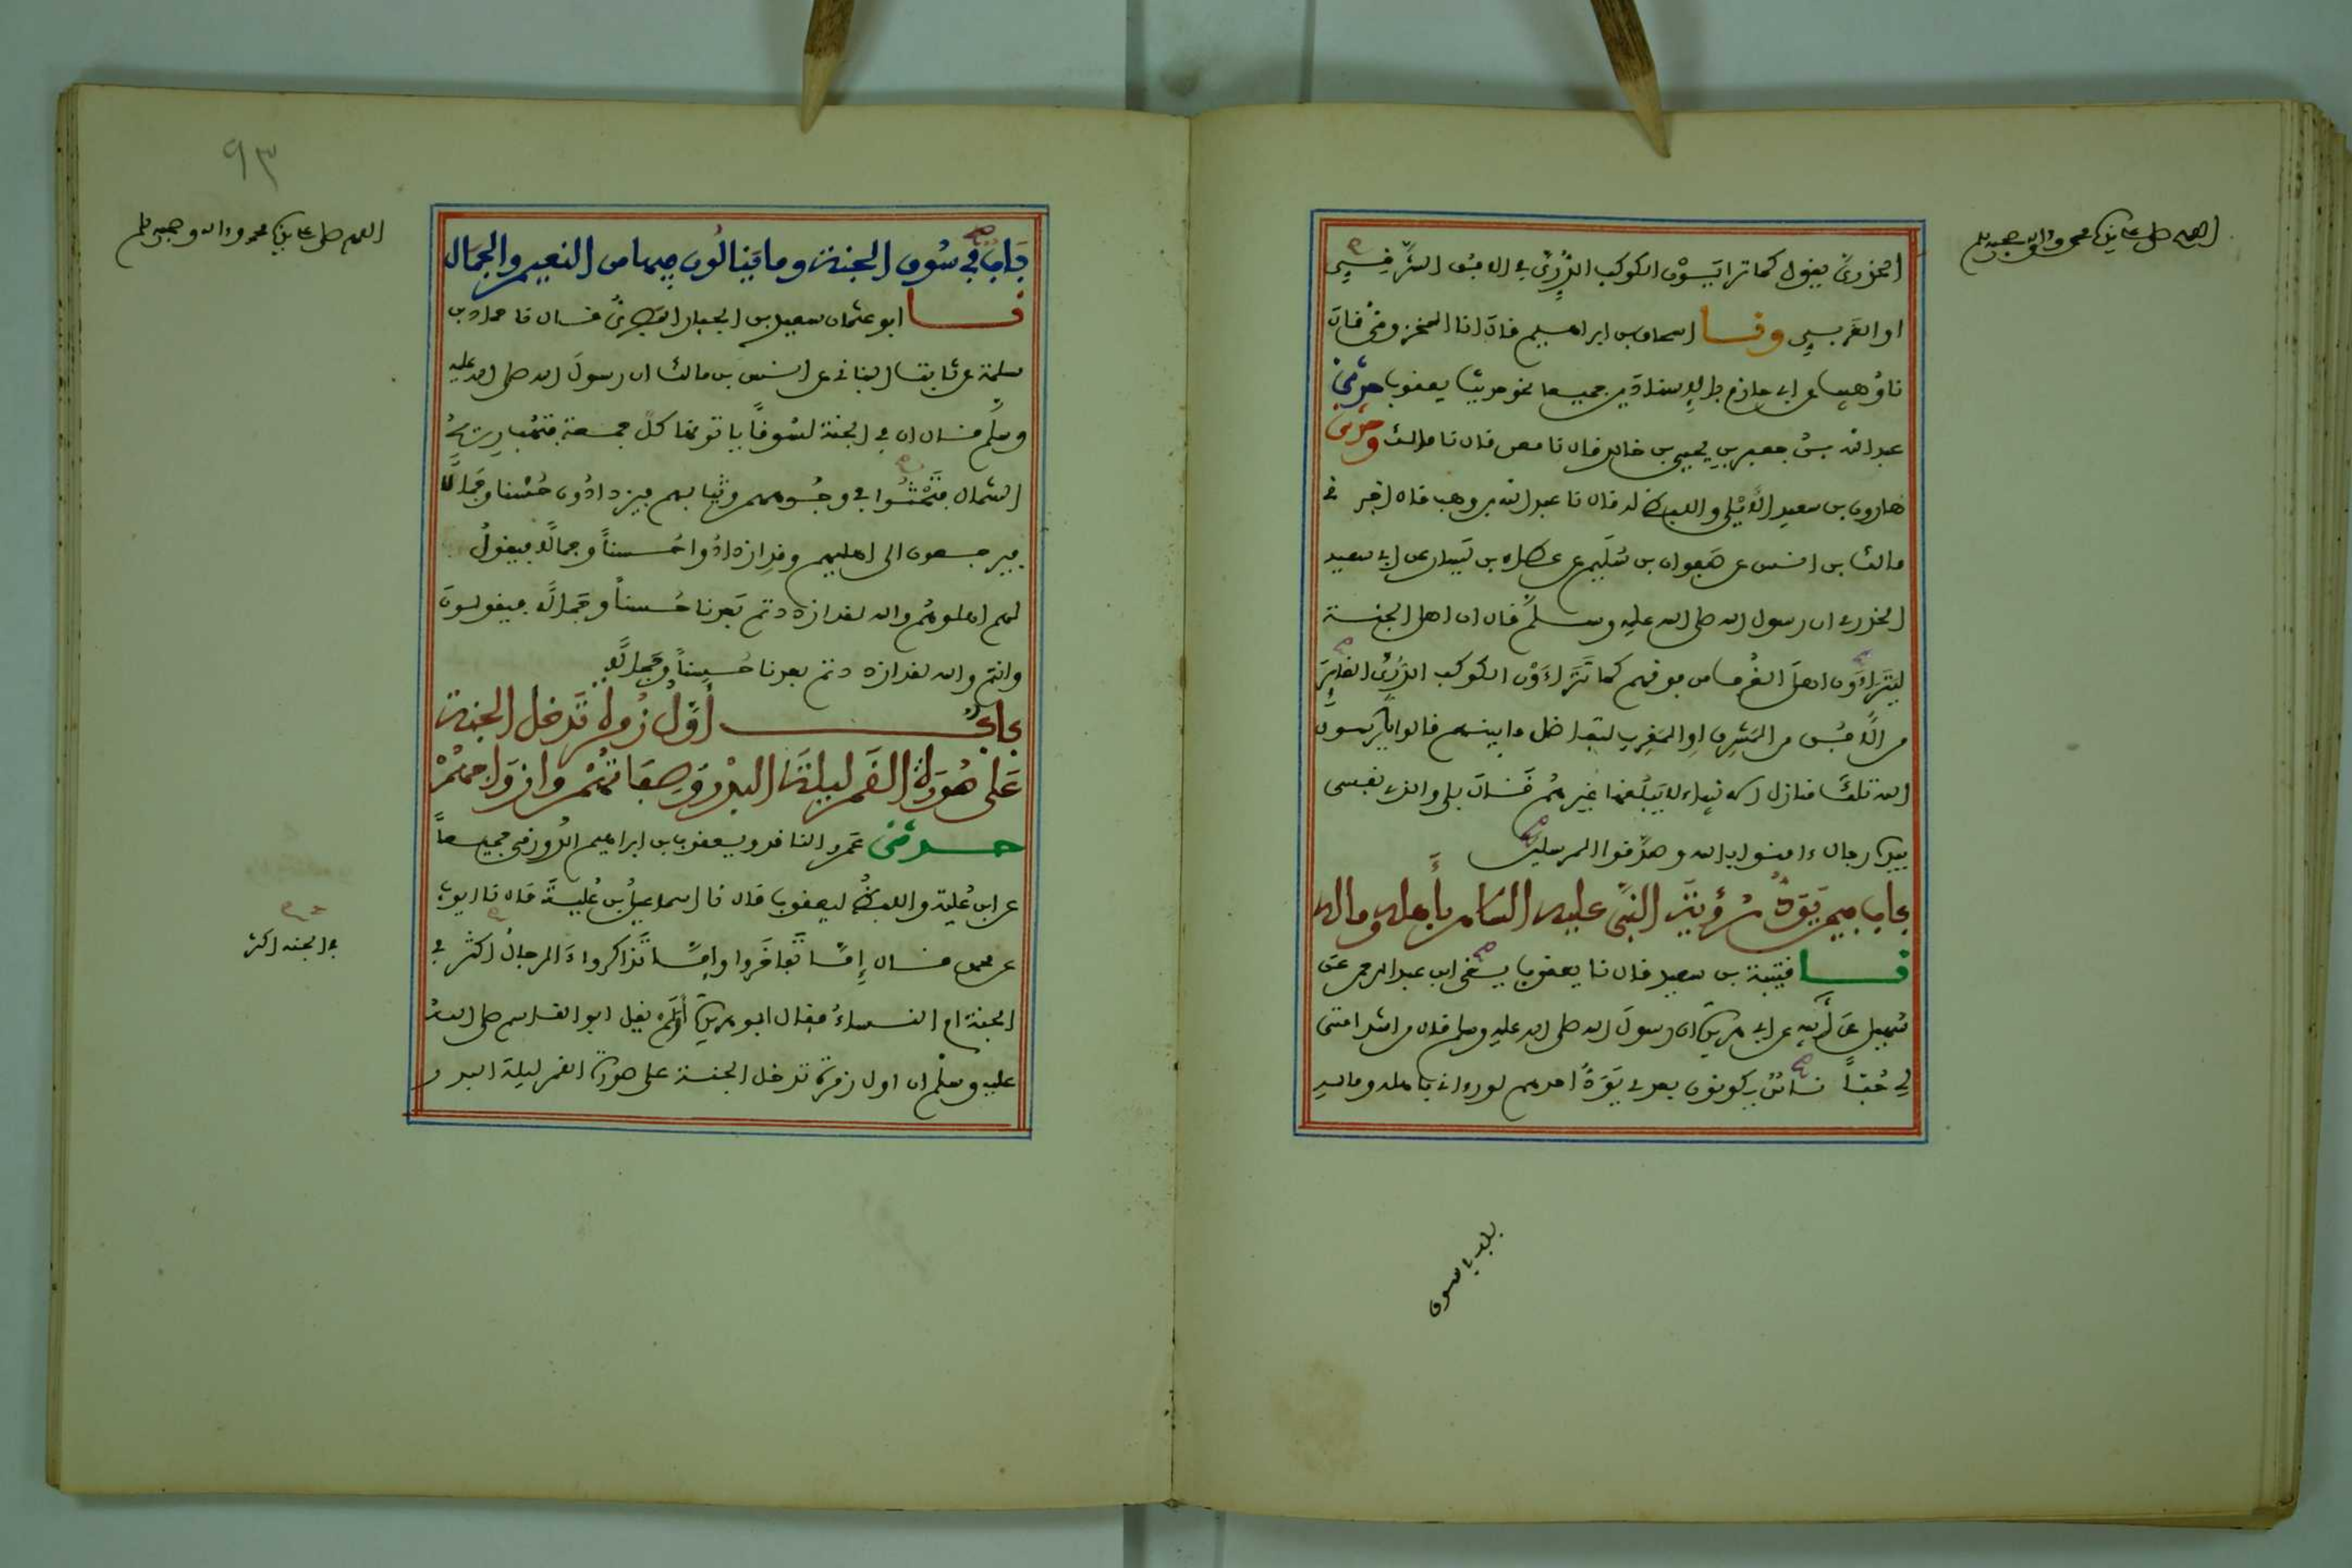 اللهم صل على سيدنا محمد وءاله وصحبه وسلم
الخدريَّ يقول كما تراءَيْوْن الكوكب الدُّرِّيَّ في الافُق الشَّرْقِيِّ
او الغَرْبيِّ ونا اسحاق بن ابراهيم قال انا المخزومي قال
نا وُهيب عن ابي حازم بالاِسنادَيْن جميعا نحو حديث يعقوب حدثني
عبد الله بنُ جعفر بنِ يحيى بن خالد قال نا معن قال نا مالك وحدثني
هارون بن سعيد الأَيْلي واللفظ له قال نا عبد الله بن وهب قال اخبرني
مالك بن انس عن صَفوان بن سُلَيم عن عطاء بن يَسار عن ابي سعيد
الخدري ان رسول الله صلى الله عليه وسلم قال ان اهل الجنة
ليَتَرَاءَوْن اهلَ الغُرف من فوقهم كما تَتَراءَوْن الكوكب الدُّرِّيَّ الغابِرَ
من الأُفُق من المَشرِق اوِ المَغرِب لتفاضل ما بينهم قالوا يا رسول
الله تلك منازل الانبياء لا يَبلُغها غيرهم قال بلى والذي نفسي
بيده رجال ءامنوا بالله وصدَّقوا المرسلين
باب فيمن يَوَدُّ رُؤيَةَ النبيِّ عليه السلام بأَهله وماله
نا قتيبة بن سعيد قال نا يعقوب يعني ابن عبد الرحمن عن
سُهيل عن أَبيه عن ابي هريرة ان رسولَ الله صلى الله عليه وسلم قال من اشد امتي
لي حُبّاً ناسٌ يكونون بعدي يَوَدُّ احدهم لو رءاني باهله وماله
باب في سوق
٩٣
اللهم صل على سيدنا محمد وءاله وصحبه وسلم
بَابٌ في سُوق الجنة وما يَنالُون فيها من النعيم والجمَال
نا ابو عثمان سعيد بن عبد الجبار البصريُّ قال نا حماد بن
سلمة عن ثابت البناني عن انس بن مالك ان رسولَ الله صلى الله عليه
وسلَّم قال ان في الجنة لسُوقاً ياتونها كلَّ جمعة فتَهُب ريحُ
الشمال فتَحْثُوا في وجُوههم وثيابهم فيزدادُون حُسْنا وجَمالاً
فيرجعون الى اهليهم وقدِ ازدادُوا حُسناً وجمالاً فيقولُ
لهم اهلوهُم والله لقد ازددتم بَعدنا حُسناً وجَمالاً فيقولونَ
وانتم والله لقد ازددتم بعدنا حُسناً وجَمالاً
بابٌ أوَّلُ زُمرة تَدخل الجنة
عَلى صُورةِ القَمر ليلةَ البدْر وَصِفَاتُهُمْ وازوَاجهُمْ
حدثني عَمرو الناقد ويعقوب بن ابراهيم الدَّورقي جميعاً
عن ابن عُلية واللفظُ ليعقوب قال نا اسماعيلُ بن عُليةَ قال نا ايوب
عن محمد قال إِمَّا تَفاخَروا وإِمَّا تَذاكروا ءَالرجالُ اكثر في
الجنة ام النساءُ فقال ابو هريرة أَوَلم يقل ابو القاسم صلى الله
عليه وسلم ان اول زمرة تدخل الجنة على صورة القمر ليلة البدر و
في الجنة اكثر